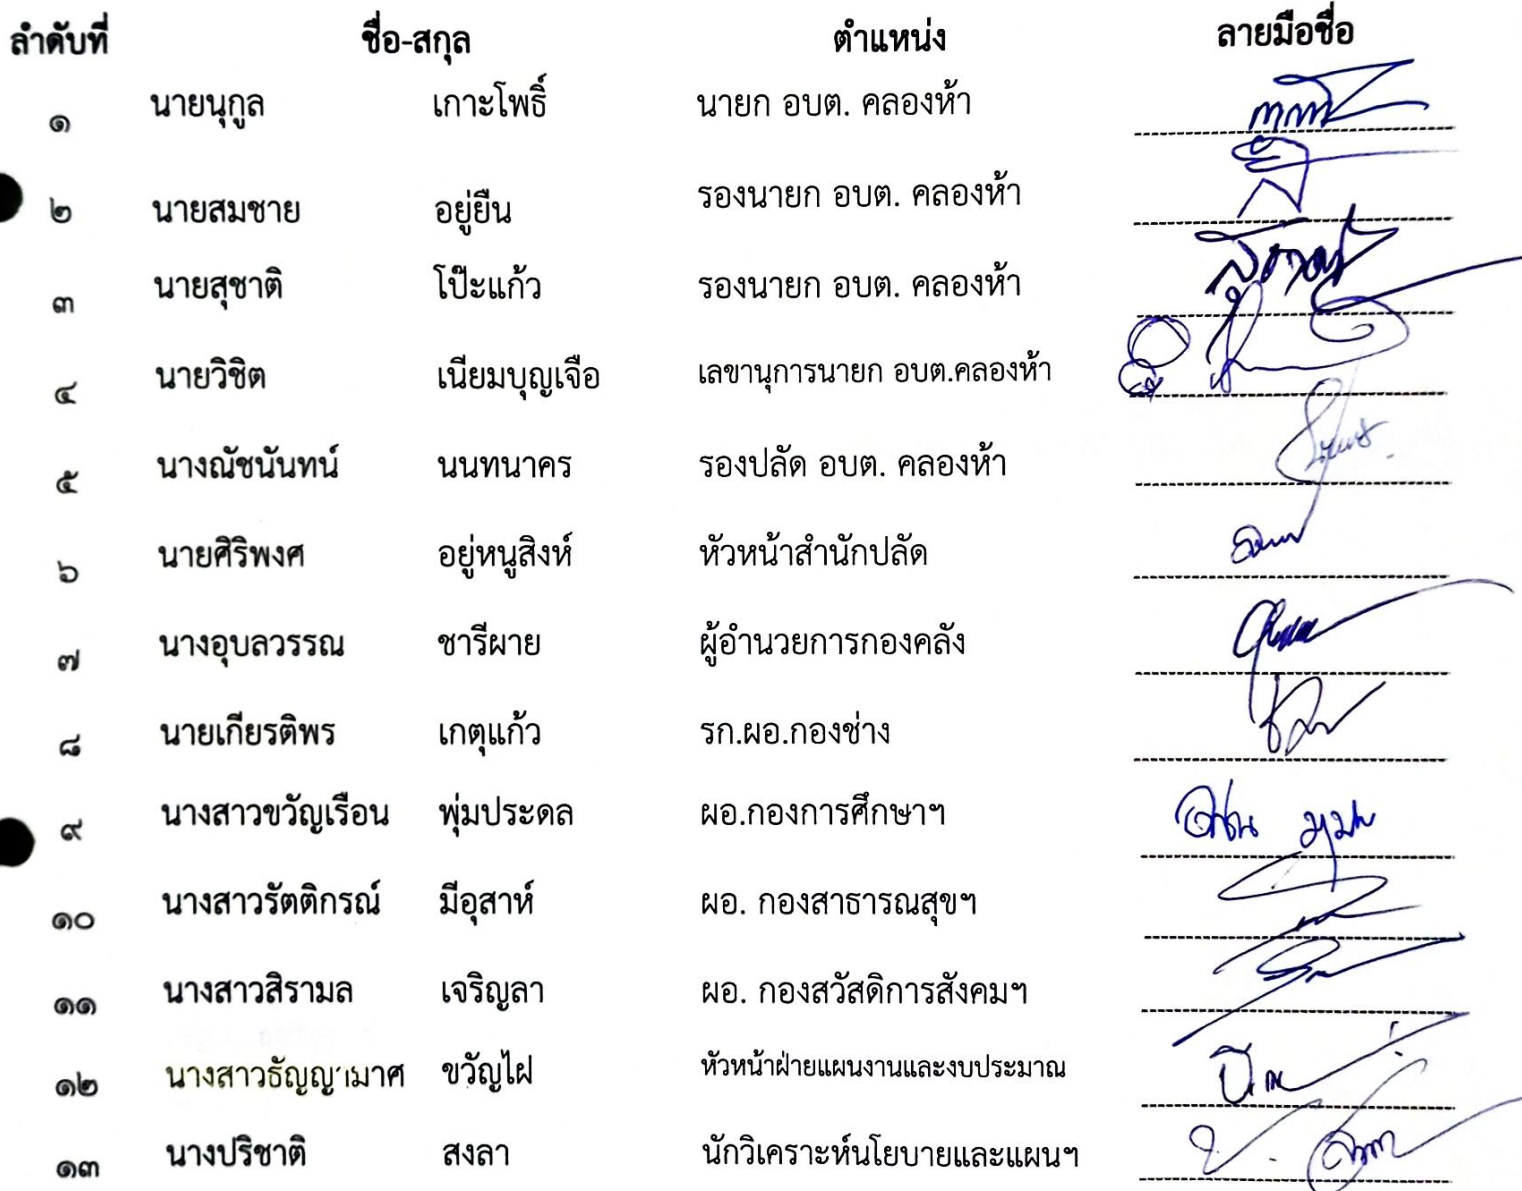 ลำดับที่ ชื่อ-สกุล ตำแหน่ง ลายมือชื่อ
๑ นายนุกูล เกาะโพธิ์ นายก อบต. คลองห้า
๒ นายสมชาย อยู่ยืน รองนายก อบต. คลองห้า
๓ นายสุชาติ โป๊ะแก้ว รองนายก อบต. คลองห้า
๔ นายวิชิต เนียมบุญเจือ เลขานุการนายก อบต.คลองห้า
๕ นางณัชนันทน์ นนทนาคร รองปลัด อบต. คลองห้า
๖ นายศิริพงศ อยู่หนูสิงห์ หัวหน้าสำนักปลัด
๗ นางอุบลวรรณ ชารีผาย ผู้อำนวยการกองคลัง
๘ นายเกียรติพร เกตุแก้ว รก.ผอ.กองช่าง
๙ นางสาวขวัญเรือน พุ่มประดล ผอ.กองการศึกษาฯ
๑๐ นางสาวรัตติกรณ์ มีอุสาห์ ผอ. กองสาธารณสุขฯ
๑๑ นางสาวสิรามล เจริญลา ผอ. กองสวัสดิการสังคมฯ
๑๒ นางสาวธัญญามาศ ขวัญไฝ หัวหน้าฝ่ายแผนงานและงบประมาณ
๑๓ นางปริชาติ สงลา นักวิเคราะห์นโยบายและแผนฯ